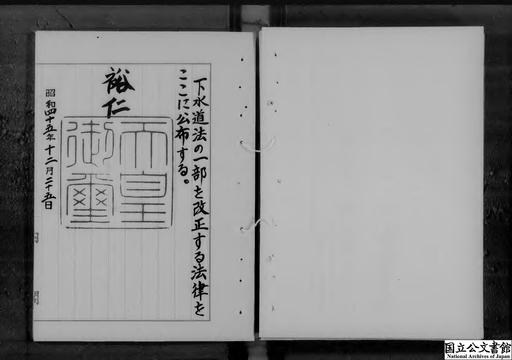 下水道法の一部を改正する法律を
ここに公布する。
裕仁
天皇
御璽
昭和四十五年十二月二十五日
国立公文書館
National Archives of Japan